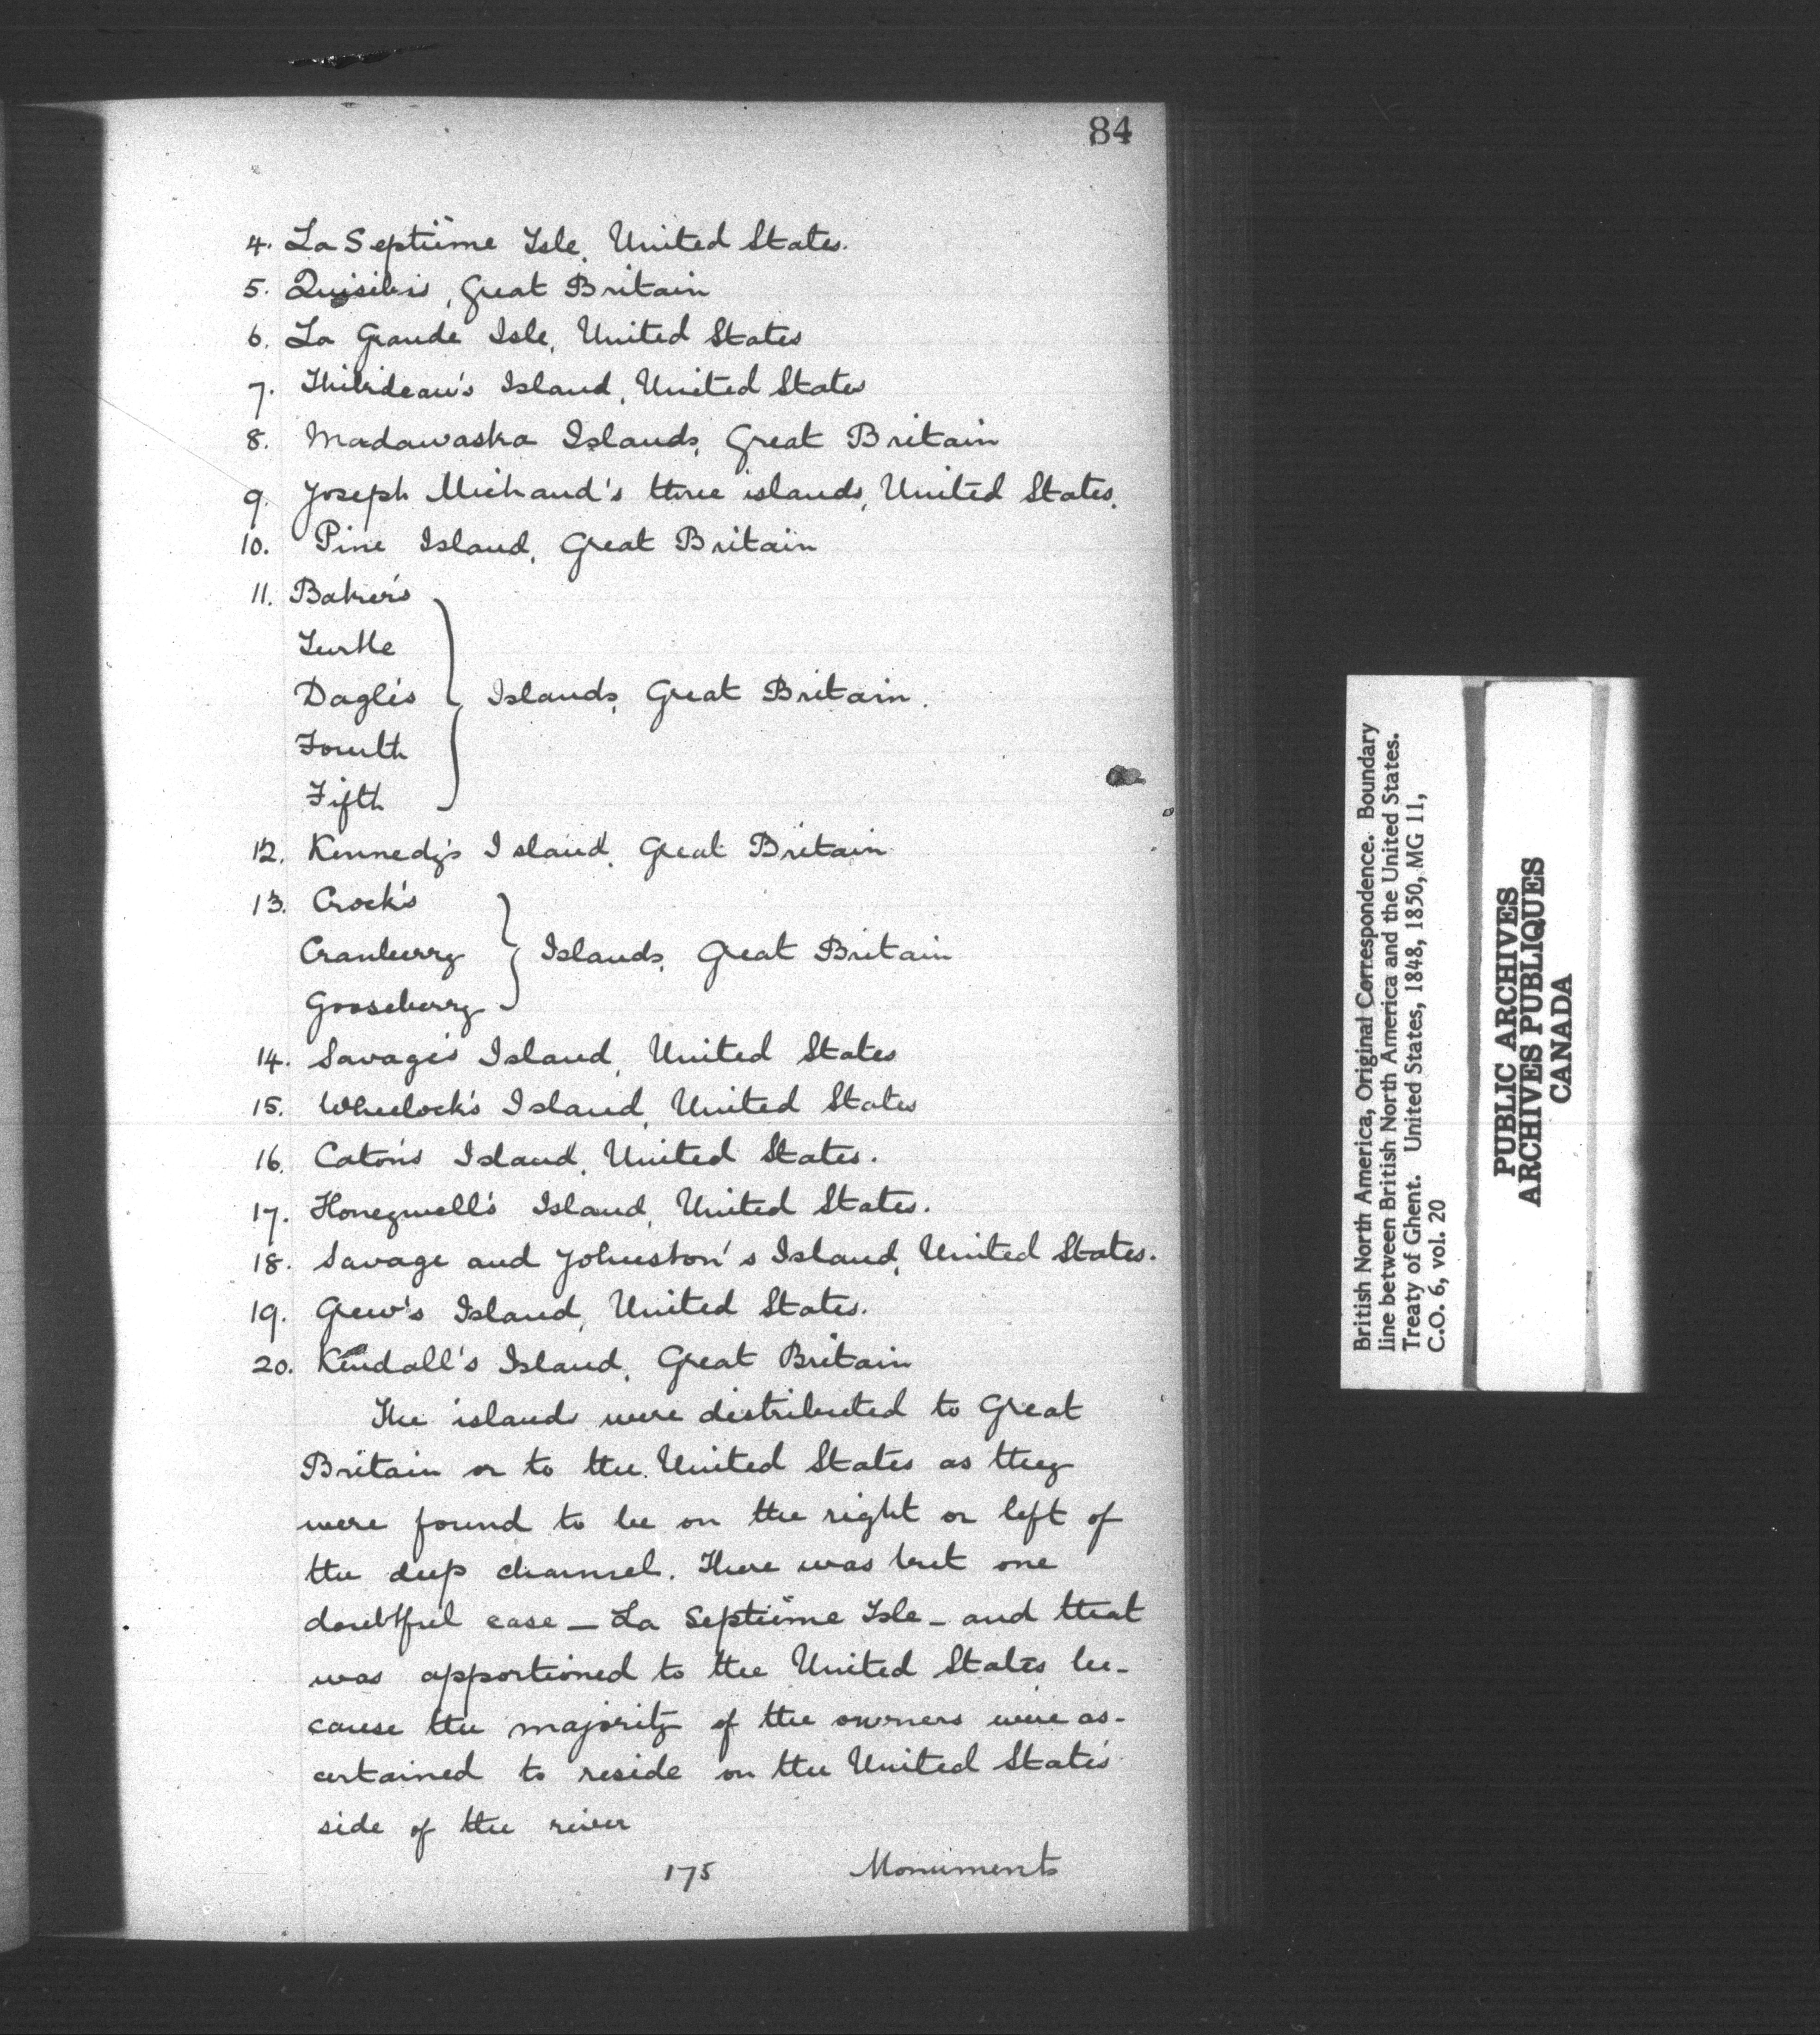 84
4. La Septième Isle, United States.
5. Quisibis, Great Britain
6. La Grande Isle, United States
7. Thibideau's Island, United States
8. Madawaska Islands, Great Britain
9. Joseph Michaud's three islands, United States.
10. Pine Island, Great Britain
11. Baker's
Turtle
Dagle's
Islands, Great Britain.
Fourth
Fifth
12. Kennedy's Island, Great Britain
13. Crock's
Cranberry
Islands, Great Britain
Gooseberry
14. Savage's Island, United States
15. Wheelock's Island, United States
16. Caton's Island, United States.
17. Honeywell's Island, United States.
18. Savage and Johnston's Island, United States.
19. Grew's Island, United States.
20. Kendall's Island, Great Britain
The islands were distributed to Great
Britain or to the United States as they
were found to be on the right or left of
the deep channel. There was but one
doubtful case — La Septième Isle — and that
was apportioned to the United States be-
cause the majority of the owners were as-
certained to reside on the United States'
side of the river
175 Monuments
British North America, Original Correspondence. Boundary
line between British North America and the United States.
Treaty of Ghent. United States, 1848, 1850, MG 11,
C.O. 6, vol. 20
PUBLIC ARCHIVES
ARCHIVES PUBLIQUES
CANADA